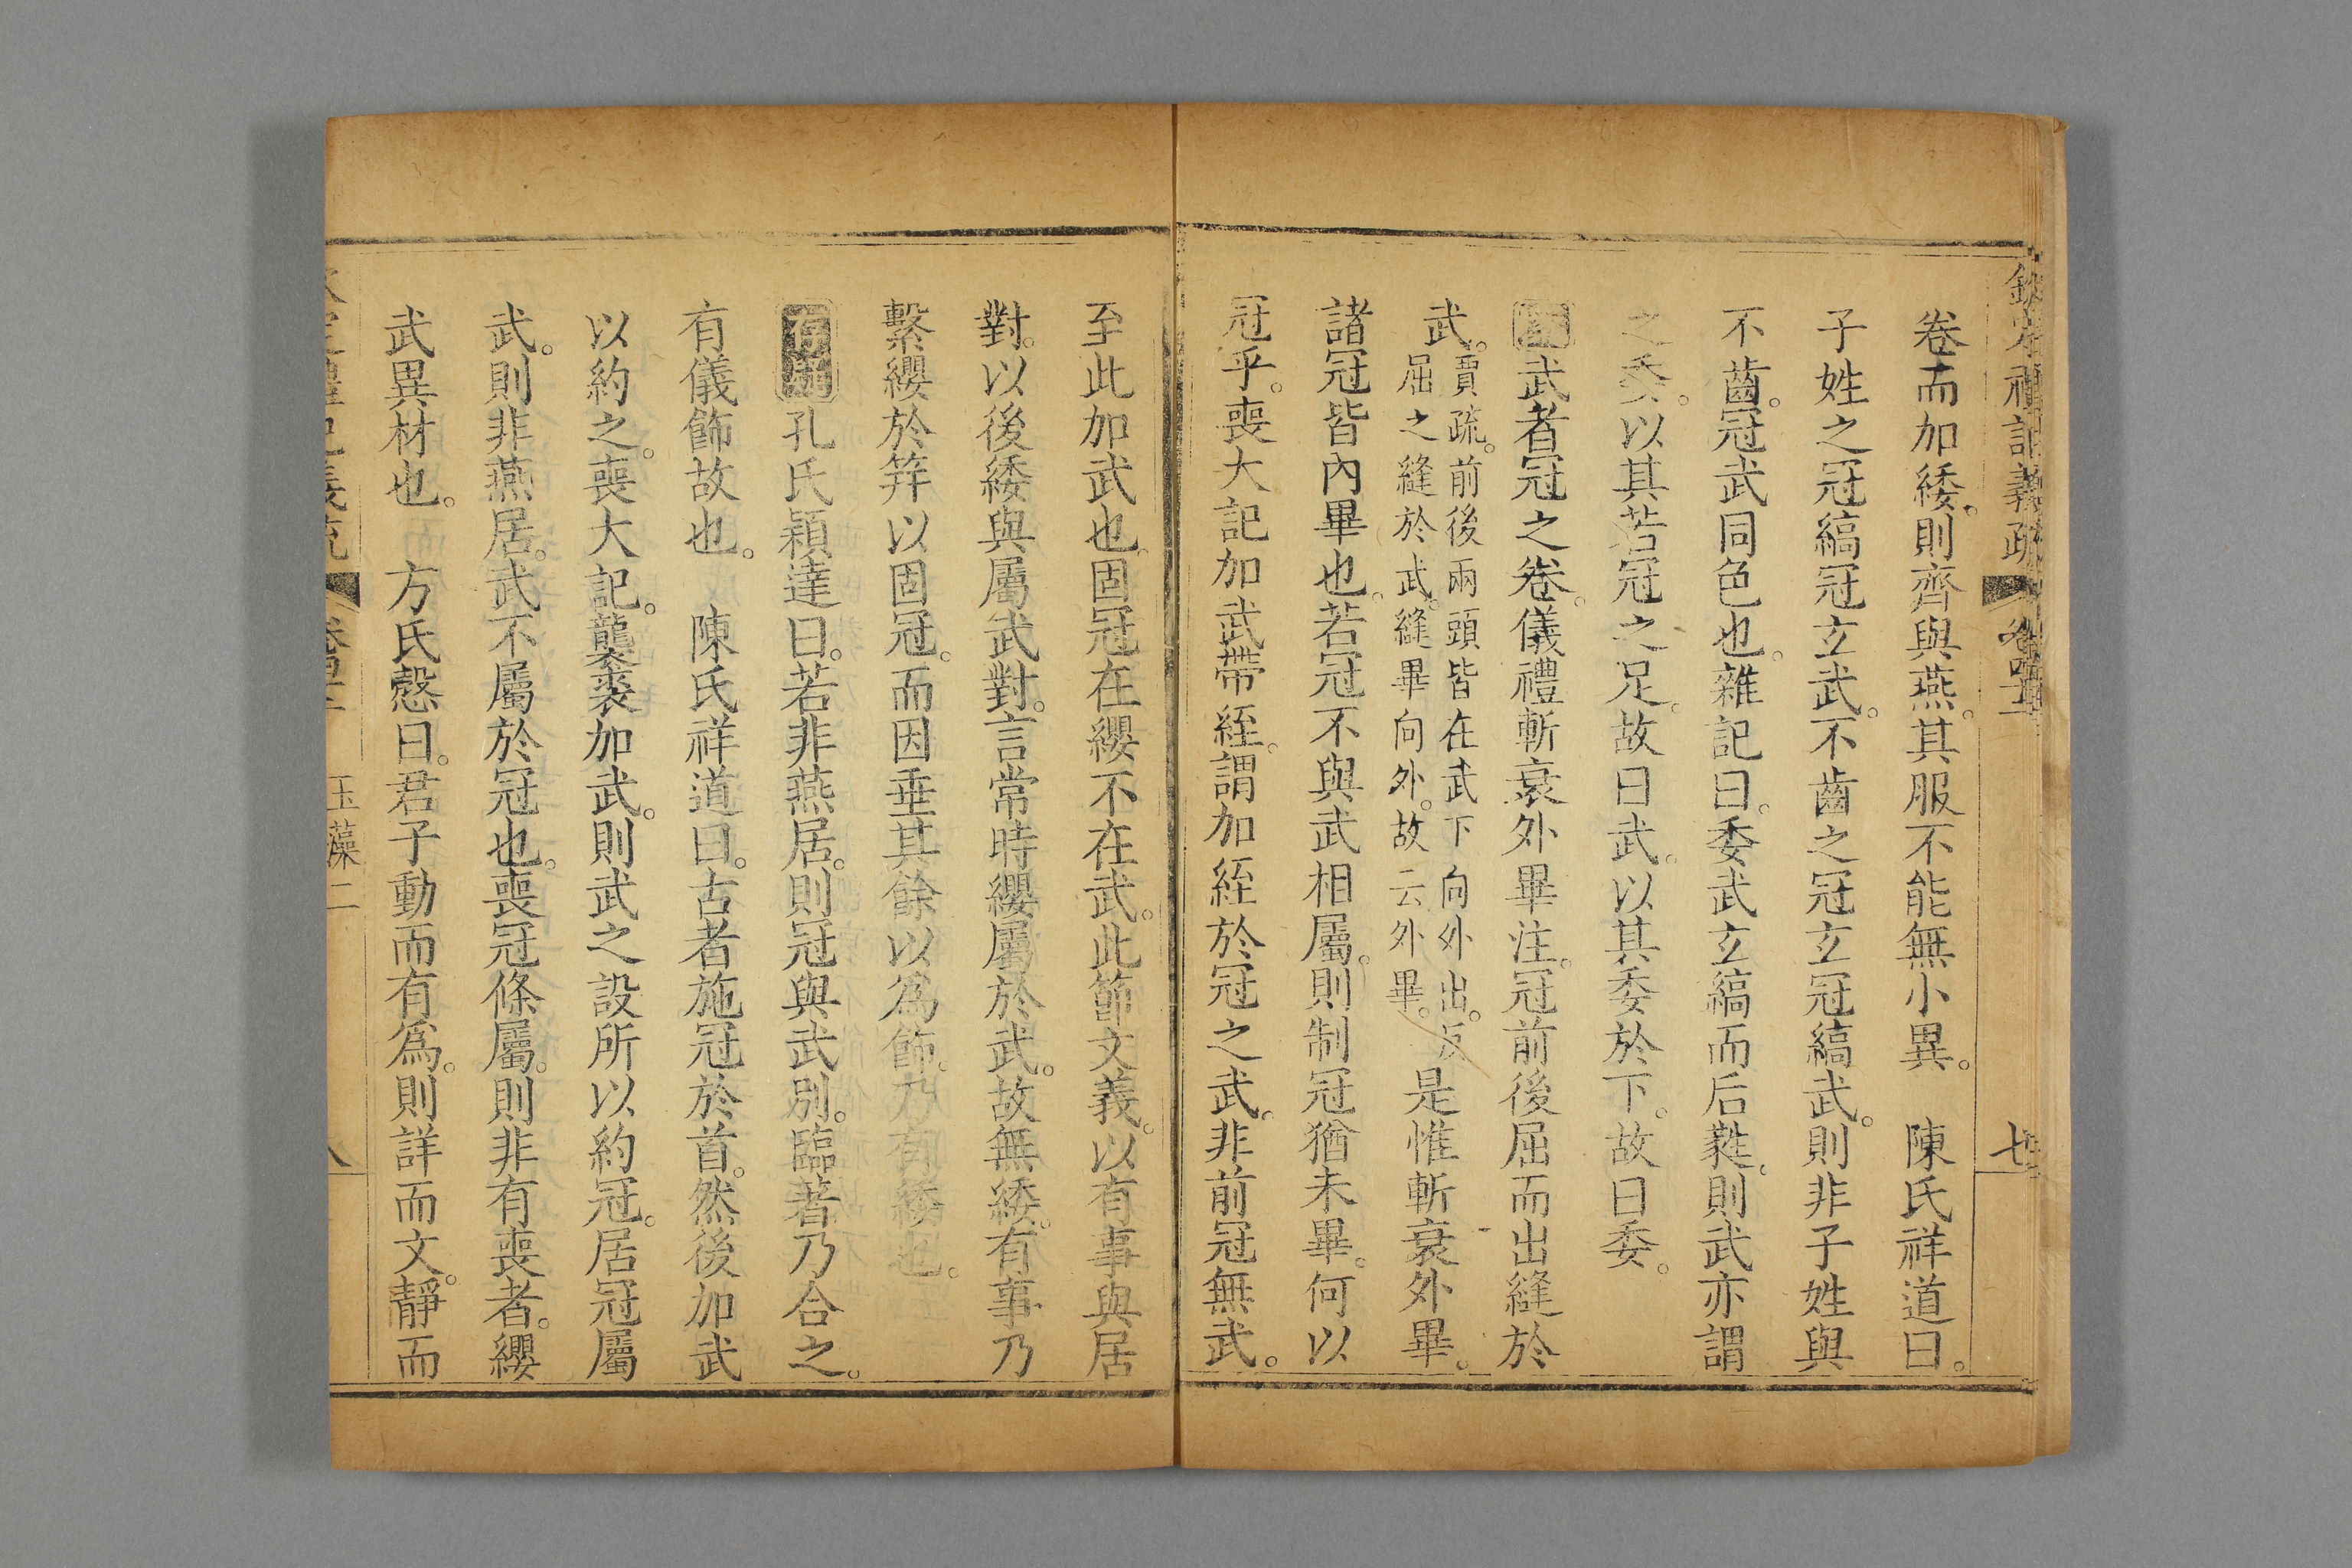 欽定禮記義疏 卷四十 七
卷而加緌。則齊與燕。其服不能無小異。 陳氏祥道曰。
子姓之冠縞冠玄武。不齒之冠玄冠縞武。則非子姓與
不齒。冠武同色也。雜記曰。委武玄縞而后蕤。則武亦謂
之委。以其若冠之足。故曰武。以其委於下。故曰委。
武者冠之卷。儀禮斬衰外畢注。冠前後屈而出縫於
武。賈疏。前後兩頭皆在武下向外出。反
屈之縫於武。縫畢向外。故云外畢。是惟斬衰外畢。
諸冠皆內畢也。若冠不與武相屬。則制冠猶未畢。何以
冠乎。喪大記加武帶絰。謂加絰於冠之武。非前冠無武。
至此加武也。固冠在纓不在武。此節文義。以有事與居
對。以後緌與屬武對。言常時纓屬於武。故無緌。有事乃
繫纓於笄以固冠。而因垂其餘以為飾。乃有緌也。
孔氏穎達曰。若非燕居。則冠與武別。臨著乃合之。
有儀飾故也。 陳氏祥道曰。古者施冠於首。然後加武
以約之。喪大記。襲裘加武。則武之設所以約冠。居冠屬
武。則非燕居。武不屬於冠也。喪冠條屬。則非有喪者。纓
武異材也。 方氏慤曰。君子動而有爲。則詳而文。靜而
玉藻二